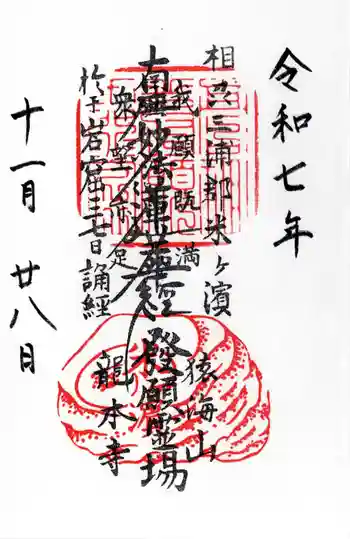 令和七年
相州三浦郡米ヶ濱
我願既満
猿海山
南無妙法蓮華経 發願霊場
衆望亦足
龍本寺
於干岩窟三七日誦経
十一月 廿八日